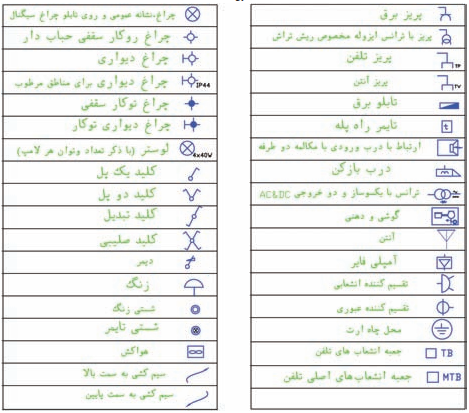 پریز برق
پریز با ترانس ایزوله مخصوص ریش تراش
پریز تلفن TP
پریز آنتن TV
تابلو برق
تایمر راه پله t
ارتباط با درب ورودی با مکالمه دو طرفه
درب بازکن
ترانس با یکسوساز و دو خروجی AC&DC
گوشی و دهنی
آنتن
آمپلی فایر
تقسیم کننده انشعابی
تقسیم کننده عبوری
محل چاه ارت
جعبه انشعاب های تلفن TB
جعبه انشعاب های اصلی تلفن MTB
چراغ،نشانه عمومی و روی تابلو چراغ سیگنال
چراغ روکار سقفی حباب دار
چراغ دیواری
چراغ دیواری برای مناطق مرطوب IP44
چراغ توکار سقفی
چراغ دیواری توکار
لوستر (با ذکر تعداد وتوان هر لامپ) 4x40W
کلید یک پل
کلید دو پل
کلید تبدیل
کلید صلیبی
دیمر
زنگ
شستی زنگ
شستی تایمر
هواکش
سیم کشی به سمت بالا
سیم کشی به سمت پایین